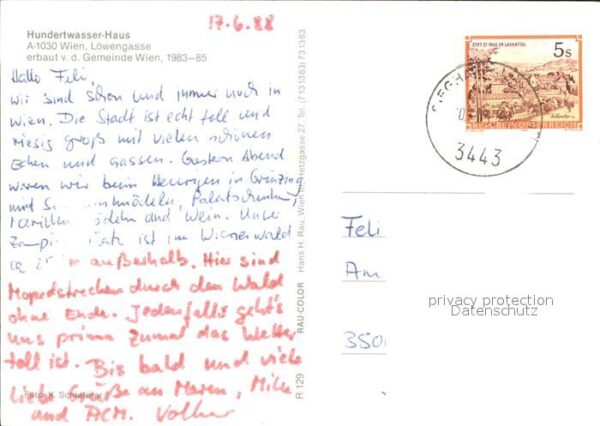 17.6.88
Hundertwasser-Haus
A-1030 Wien, Löwengasse
erbaut v. d. Gemeinde Wien, 1983–85
Hallo Feli,
wir sind schon und immer noch in
Wien. Die Stadt ist echt toll und
riesig groß mit vielen schönen
Ecken und Gassen. Gestern Abend
waren wir beim Heurigen in Grinzing
mit Palatschinken,
und Wein. Unser
ist im Wienerwald
ca 25 außerhalb. Hier sind
Mopedstrecken durch den Wald
ohne Ende. Jedenfalls geht's
uns prima zumal das Wetter
toll ist. Bis bald und viele
liebe Grüße an Maren,
und Volker
Foto: K.
R 129 RAU-COLOR Hans H. Rau, Wien 10, Herzgasse 27, Tel. (7131383) 731383
STIFT ST. PAUL IM LAVANTTAL
5 s
REPUBLIK ÖSTERREICH
3443
Feli
Am
350
privacy protection
Datenschutz